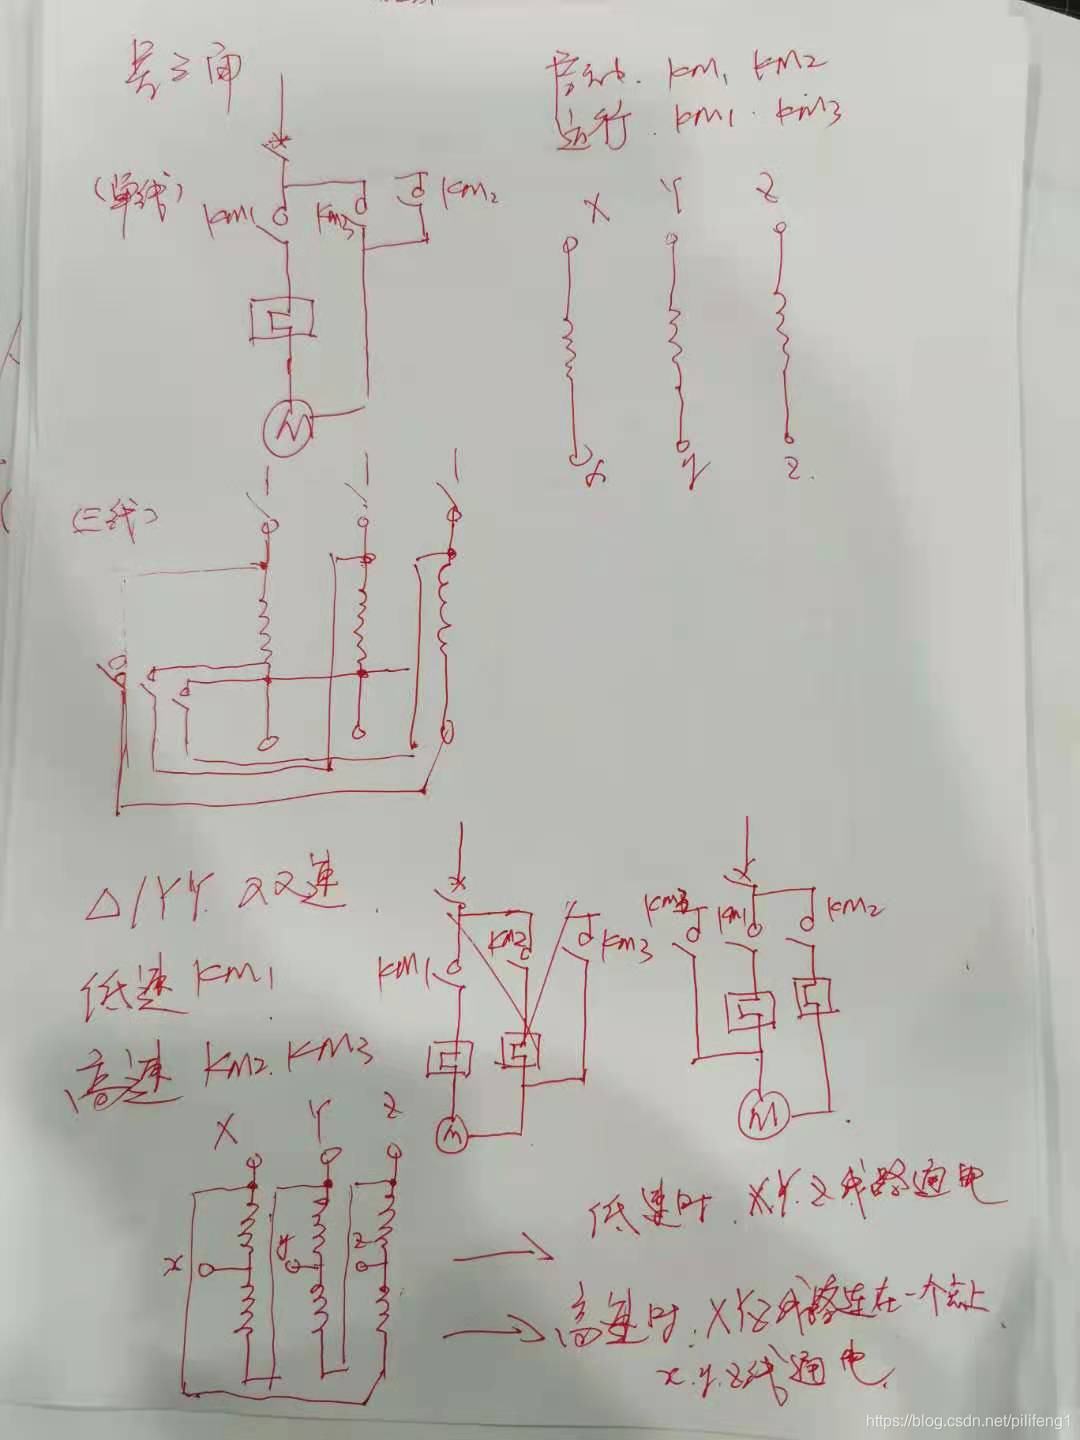 启动. KM1 KM2
运行. KM1. KM3
(单线)
KM1
KM3
KM2
X Y Z
x y z.
(三线)
△/YY. 双速.
低速 KM1
高速 KM2. KM3
KM1
KM2
KM3
KM3
KM1
KM2
X Y Z
x y z
低速时. X.Y.Z线路通电
高速时. XYZ线路连在一个点上
x.y.z线通电.
https://blog.csdn.net/pilifeng1